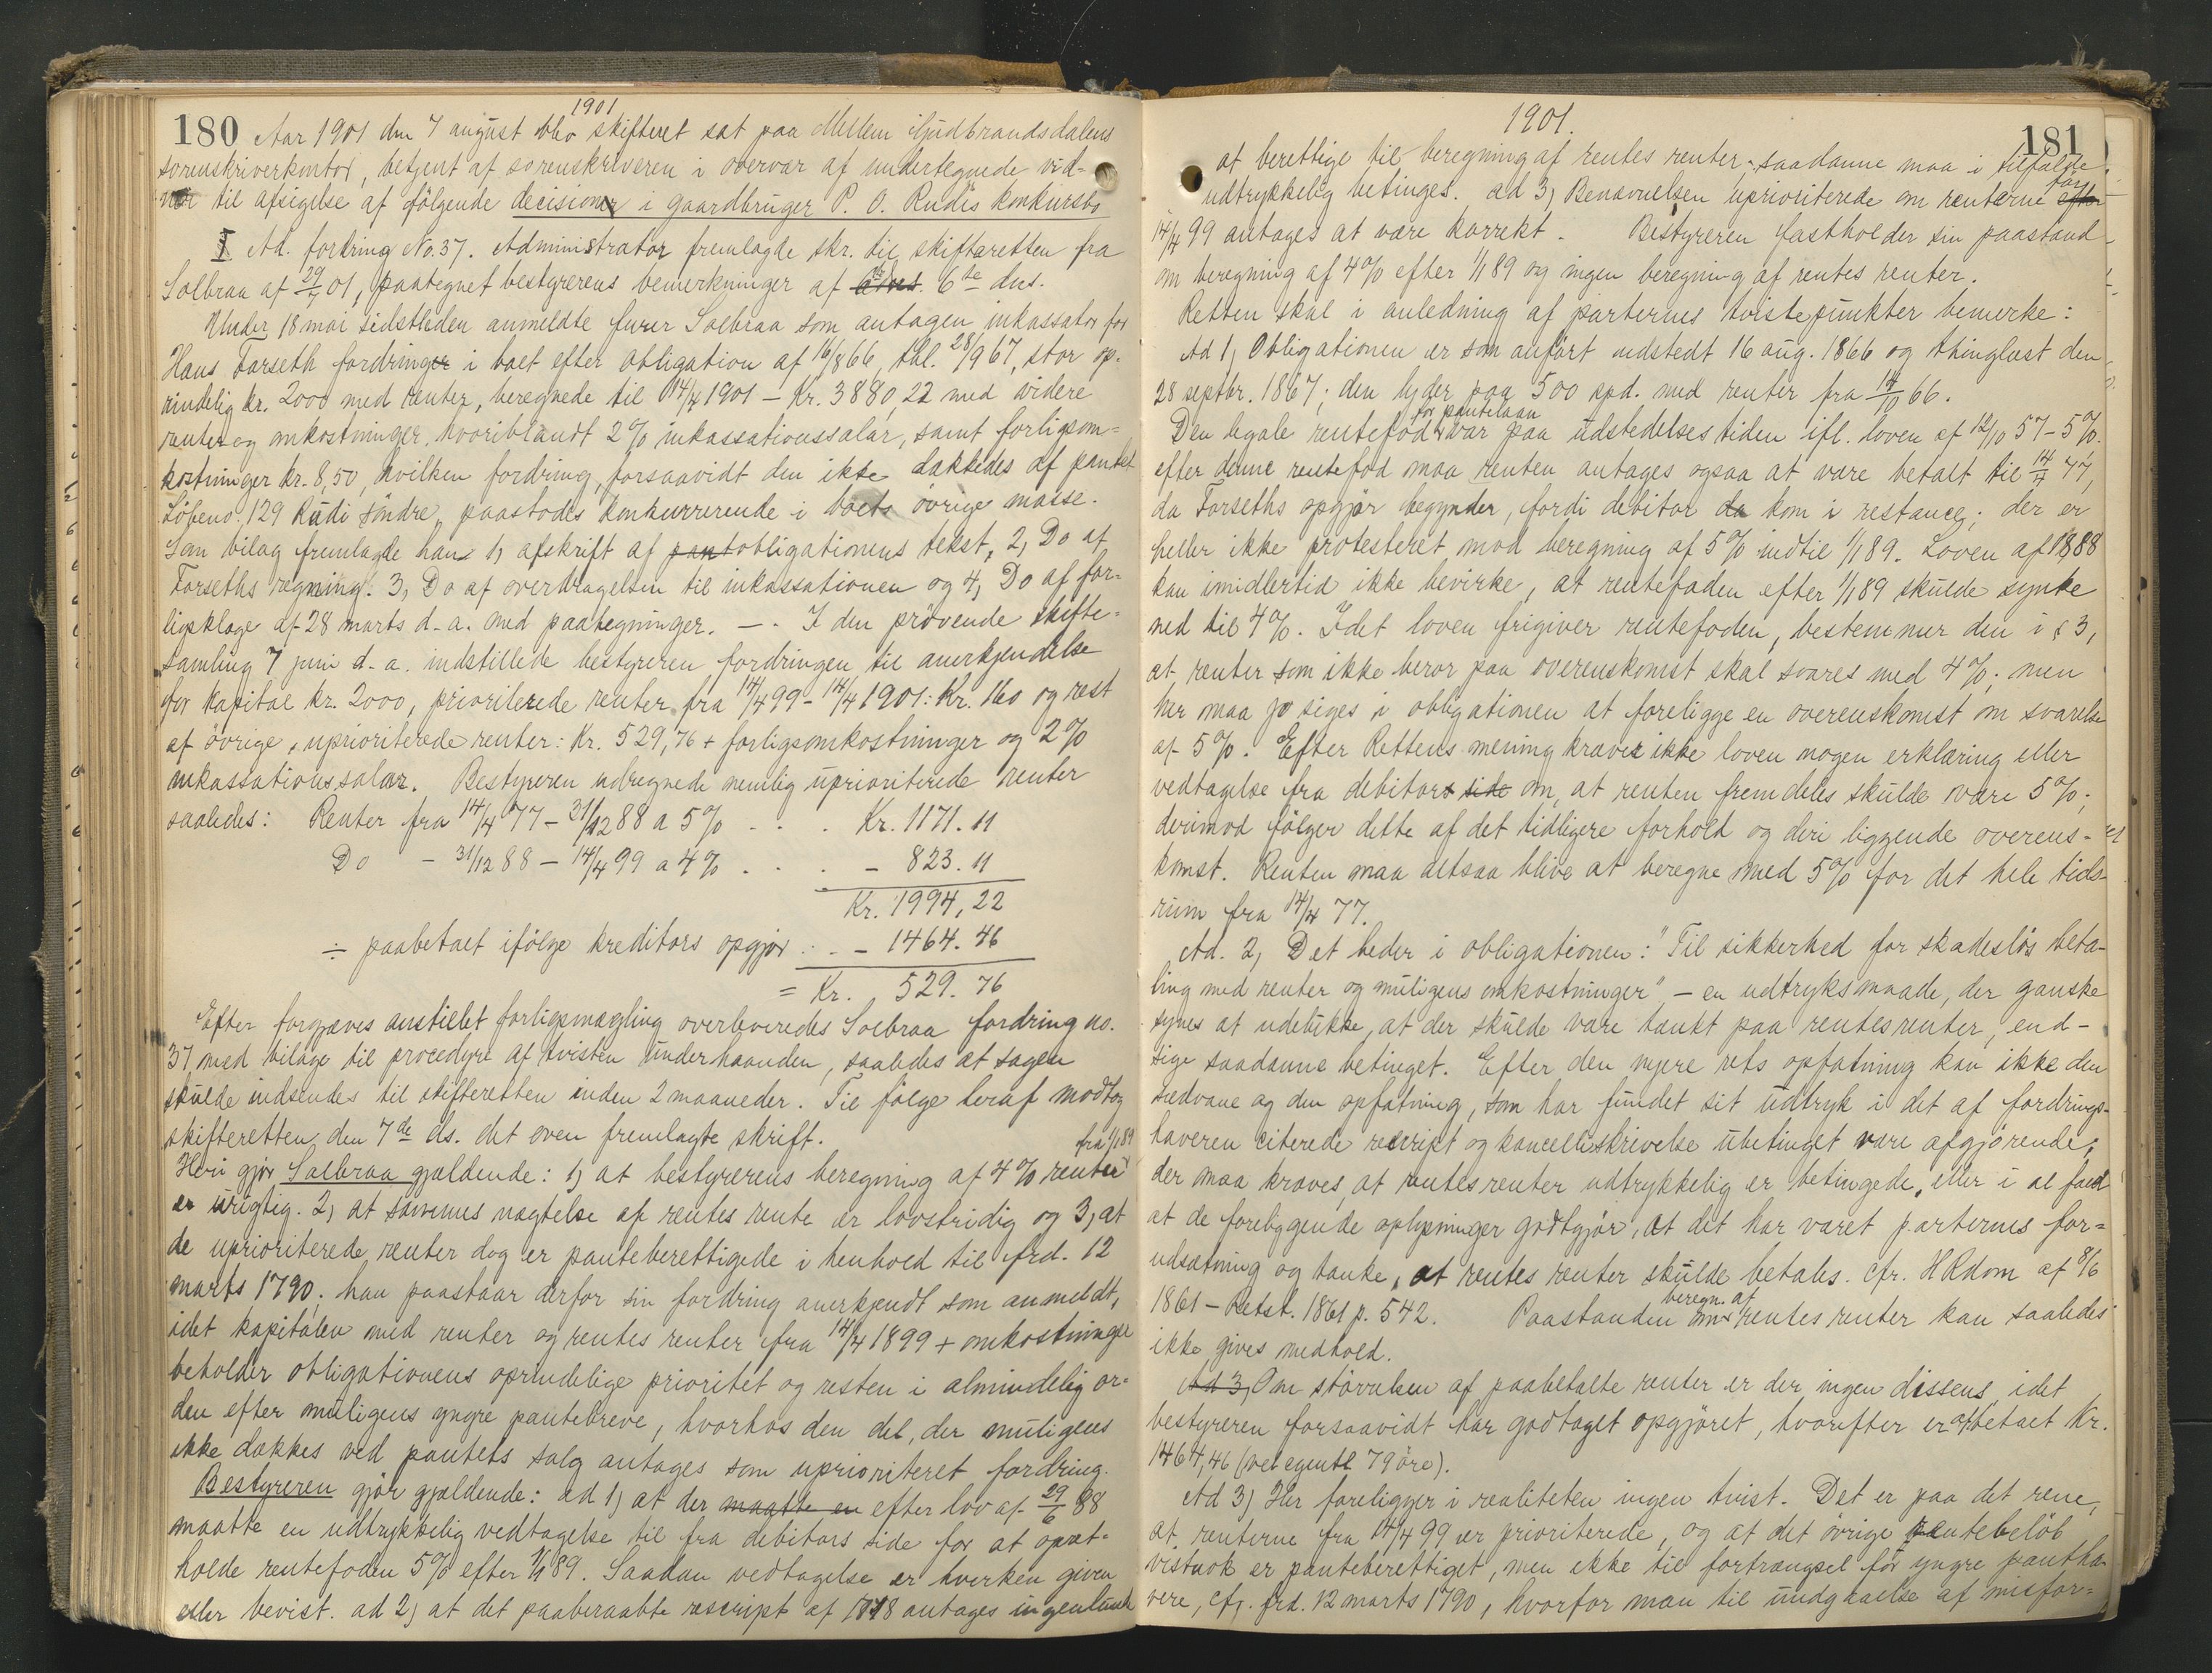 1901
180 Aar 1901 den 7 august blev skifteret sat paa Mellem Gudbrandsdalens
sorenskriverkontor, betjent af sorenskriveren i overvær af undertegnede vid-
ner til afsigelse af følgende decisioner i gaardbruger P. O. Rudis konkursbo
I Ad. fordring No. 37. Administrator fremlagde skr. til skifteretten fra
Solbraa af 29/7 01, paategnet bestyrerens bemerkninger af 6te dns.
Under 18 mai sidstleden anmeldte furer Solbraa som antagen inkassator for
Hans Forseth fordringer i boet efter obligation af 16/8 66, thl. 28/9 67, stor op-
rindelig kr. 2000 med renter, beregnede til 14/4 1901 - Kr. 3880,22 med videre
renter og omkostninger, hvoriblandt 2% inkassationssalær, samt forligsom-
kostninger kr. 8,50, hvilken fordring, forsaavidt den ikke dækkedes af pantet
Løbeno. 129 Rudi søndre, paastodes konkurrerende i boets øvrige masse.
Som bilag fremlagde han 1, afskrift af pantobligationens tekst, 2, Do af
Forseths regning. 3, Do af overdragelsen til inkassationen og 4, Do af for-
ligsklage af 28 marts d. a. med paategninger. — I den prøvende skifte-
samling 7 juni d. a. indstillede bestyreren fordringen til anerkjendelse
for kapital kr. 2000, prioriterede renter fra 14/4 99 - 14/4 1901: Kr. 160 og rest
af øvrige, uprioriterede renter: Kr. 529,76 + forligsomkostninger og 2%
inkassationssalær. Bestyreren udregnede nemlig uprioriterede renter
saaledes: Renter fra 14/4 77 - 31/12 88 a 5% . . . Kr. 1171.11
Do - 31/12 88 - 14/4 99 a 4% . . . - 823.11
Kr. 1994,22
÷ paabetalt ifølge kreditors opgjør . . - 1464.46
= Kr. 529.76
Efter forgjæves anstillet forligsmægling overleveredes Solbraa fordring no.
37 med bilage til procedyre af tvisten underhaanden, saaledes at sagen
skulde indsendes til skifteretten inden 2 maaneder. Til følge heraf modtog
skifteretten den 7de ds. det oven fremlagte skrift.
fra 1/1 89
Heri gjør Solbraa gjældende: 1, at bestyrerens beregning af 4% renter
er urigtig. 2, at sammes nægtelse af rentes rente er lovstridig og 3, at
de uprioriterede renter dog er panteberettigede i henhold til frd. 12
marts 1790; han paastaar derfor sin fordring anerkjendt som anmeldt,
idet kapitalen med renter og rentes renter fra 14/4 1899 + omkostninger
beholder obligationens oprindelige prioritet og resten i almindelig or-
den efter muligens yngre pantebreve, hvorhos den del, der muligens
ikke dækkes ved pantets salg antages som uprioriteret fordring.
Bestyreren gjør gjældende: ad 1, at der maatte en efter lov af 29/6 88
maatte en udtrykkelig vedtagelse til fra debitors side for at opret-
holde rentefoden 5% efter 1/1 89. Saadan vedtagelse er hverken given
eller bevist. ad 2, at det paaberaabte rescript af 1748 antages ingenlunde
1901.
181
at berettige til beregning af rentes renter, saadanne maa i tilfælde
udtrykkelig betinges. ad 3, Benævnelsen uprioriterede om renterne efter før
14/4 99 antages at være korrekt. Bestyreren fastholder sin paastand
om beregning af 4% efter 1/1 89 og ingen beregning af rentes renter.
Retten skal i anledning af parternes tvistepunkter bemerke:
Ad 1, Obligationen er som anført udstedt 16 aug. 1866 og thinglæst den
28 septbr. 1867; den lyder paa 500 spd. med renter fra 14/10 66.
for pantelaan
Den legale rentefod var paa udstedelsestiden ifl. loven af 12/10 57 - 5%.
efter denne rentefod maa renten antages ogsaa at være betalt til 14/4 77,
da Forseths opgjør begynder, fordi debitor da kom i restance; der er
heller ikke protesteret mod beregning af 5% indtil 1/1 89. Loven af 1888
kan imidlertid ikke bevirke, at rentefoden efter 1/1 89 skulde synke
ned til 4%. Idet loven frigiver rentefoden, bestemmer den i § 3,
at renter som ikke beror paa overenskomst skal svares med 4%; men
her maa jo siges i obligationen at foreligge en overenskomst om svarelse
af 5%. Efter Rettens mening kræver ikke loven nogen erklæring eller
vedtagelse fra debitors side om, at renten fremdeles skulde være 5%;
derimod følger dette af det tidligere forhold og deri liggende overens-
komst. Renten maa altsaa blive at beregne med 5% for det hele tids-
rum fra 14/4 77.
Ad. 2, Det heder i obligationen: "Til sikkerhed for skadesløs beta-
ling med renter og muligens omkostninger" — en udtryksmaade, der ganske
synes at udelukke, at der skulde være tænkt paa rentesrenter, end-
sige saadanne betinget. Efter den nyere rets opfatning kan ikke den
sedvane og den opfatning, som har fundet sit udtryk i det af fordrings-
haveren citerede rescript og kancelliskrivelse ubetinget være afgjørende;
der maa kræves, at rentesrenter udtrykkelig er betingede, eller i al fald
at de foreliggende oplysninger godtgjør, at det har været parternes for-
udsætning og tanke, at rentes renter skulde betales. cfr. HRdom af 8/6
beregn. af
1861 - Retst. 1861 p. 542. Paastanden om rentes renter kan saaledes
ikke gives medhold.
Ad 3, Om størrelsen af paabetalte renter er der ingen dissens, idet
bestyreren forsaavidt har godtaget opgjøret, hvorefter er afbetalt Kr.
1464,46 (vel egentl. 79 øre).
Ad 3) Her foreligger i realiteten ingen tvist. Det er paa det rene,
at renterne fra 14/4 99 er prioriterede, og at det øvrige rentebeløb
vistnok er panteberettiget, men ikke til fortrængsel for yngre pantha-
vere, cfr. frd. 12 marts 1790, hvorfor man til undgaaelse af misfor-